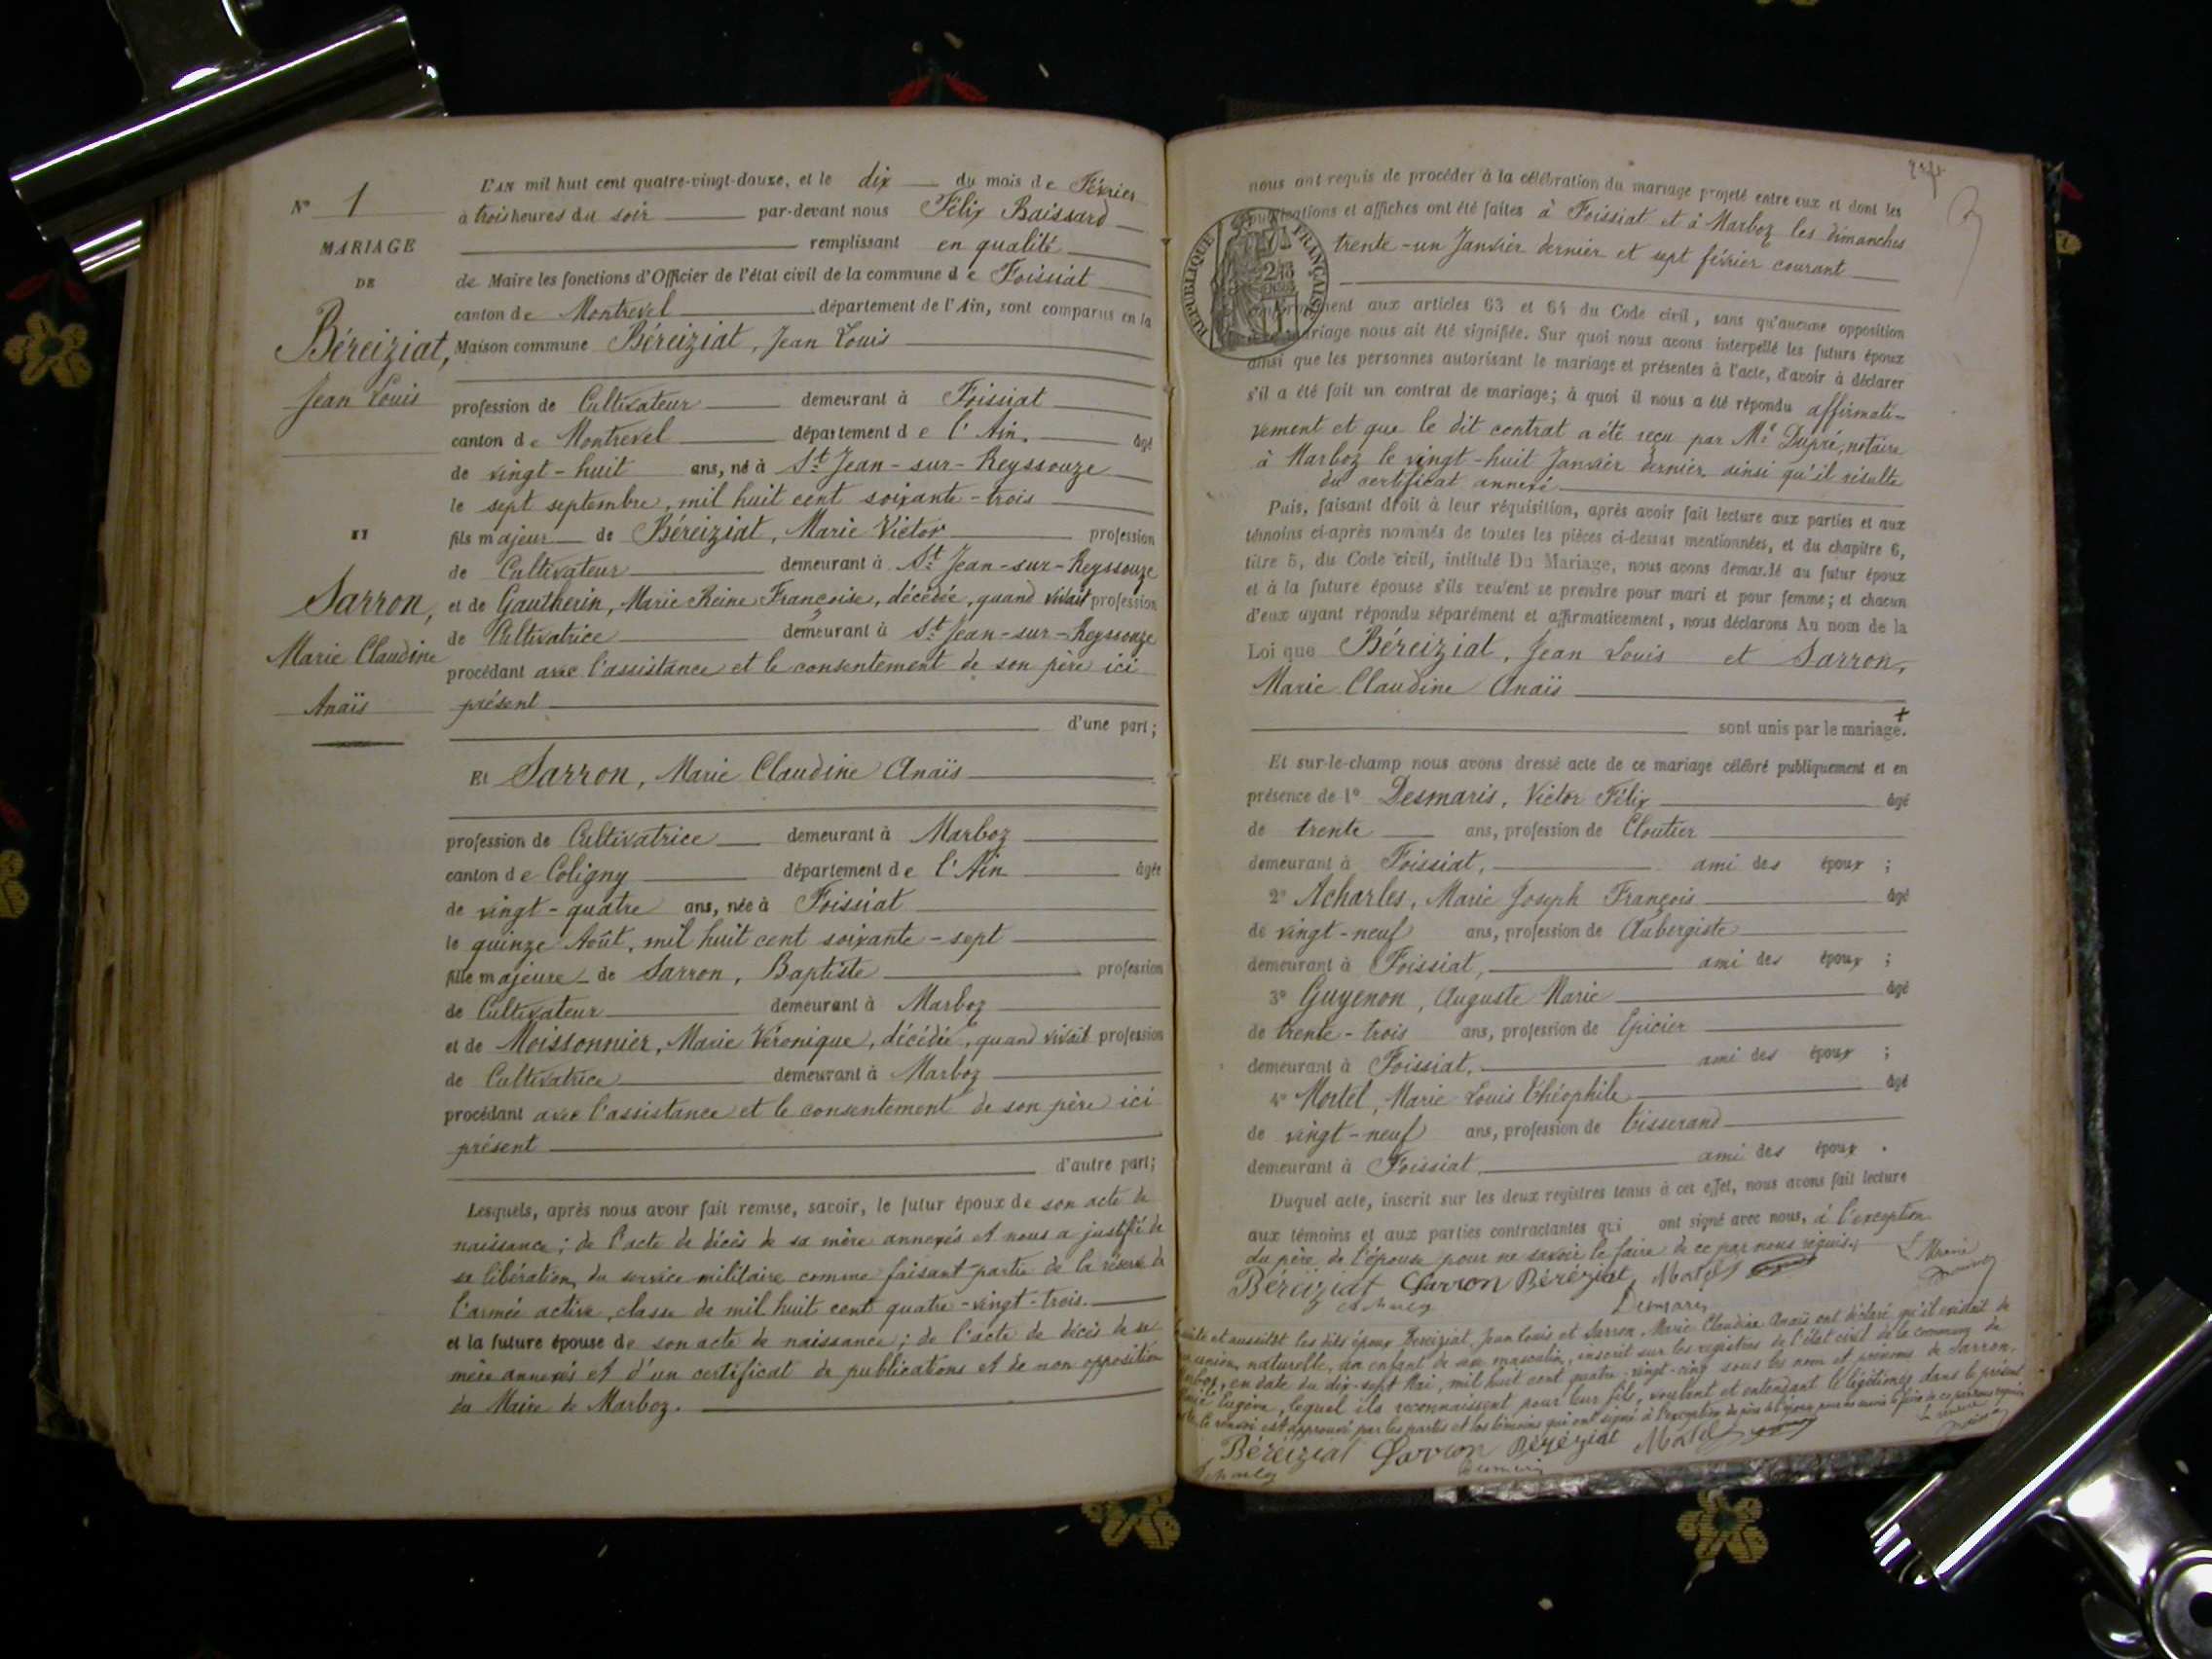 N° 1
MARIAGE
DE
Béreiziat,
Jean Louis
ET
Sarron,
Marie Claudine
Anaïs
L'AN mil huit cent quatre-vingt-douze, et le dix du mois de Février
à trois heures du soir par-devant nous Félix Baissard
remplissant en qualité
de Maire les fonctions d'Officier de l'état civil de la commune de Foissiat
canton de Montrevel département de l'Ain, sont comparus en la
Maison commune Béreiziat, Jean Louis
profession de Cultivateur demeurant à Foissiat
canton de Montrevel département de l'Ain. âgé
de vingt-huit ans, né à St Jean-sur-Reyssouze
le sept septembre, mil huit cent soixante-trois
fils majeur de Béreiziat, Marie Victor profession
de Cultivateur demeurant à St Jean-sur-Reyssouze
et de Gautherin, Marie Reine Françoise, décédée, quand vivait profession
de Cultivatrice demeurant à St Jean-sur-Reyssouze
procédant avec l'assistance et le consentement de son père ici
présent
d'une part;
Et Sarron, Marie Claudine Anaïs
profession de Cultivatrice demeurant à Marboz
canton de Coligny département de l'Ain âgée
de vingt-quatre ans, née à Foissiat
le quinze Août, mil huit cent soixante-sept
fille majeure de Sarron, Baptiste profession
de Cultivateur demeurant à Marboz
et de Moissonnier, Marie Véronique, décédée, quand vivait profession
de Cultivatrice demeurant à Marboz
procédant avec l'assistance et le consentement de son père ici
présent
d'autre part;
Lesquels, après nous avoir fait remise, savoir, le futur époux de son acte de
naissance; de l'acte de décès de sa mère annexés et nous a justifié de
sa libération du service militaire comme faisant partie de la réserve de
l'armée active, classe de mil huit cent quatre-vingt-trois.
et la future épouse de son acte de naissance; de l'acte de décès de sa
mère annexés et d'un certificat de publications et de non opposition
du Maire de Marboz.
nous ont requis de procéder à la célébration du mariage projeté entre eux et dont les
publications et affiches ont été faites à Foissiat et à Marboz les dimanches
trente-un Janvier dernier et sept février courant
RÉPUBLIQUE FRANÇAISE
conformément aux articles 63 et 64 du Code civil, sans qu'aucune opposition
mariage nous ait été signifiée. Sur quoi nous avons interpellé les futurs époux
ainsi que les personnes autorisant le mariage et présentes à l'acte, d'avoir à déclarer
s'il a été fait un contrat de mariage; à quoi il nous a été répondu affirmati-
vement et que le dit contrat a été reçu par Me Dupré, notaire
à Marboz le vingt-huit Janvier dernier ainsi qu'il résulte
du certificat annexé
Puis, faisant droit à leur réquisition, après avoir fait lecture aux parties et aux
témoins ci-après nommés de toutes les pièces ci-dessus mentionnées, et du chapitre 6,
titre 5, du Code civil, intitulé Du Mariage, nous avons demandé au futur époux
et à la future épouse s'ils veulent se prendre pour mari et pour femme; et chacun
d'eux ayant répondu séparément et affirmativement, nous déclarons Au nom de la
Loi que Béreiziat, Jean Louis et Sarron,
Marie Claudine Anaïs
sont unis par le mariage. +
Et sur-le-champ nous avons dressé acte de ce mariage célébré publiquement et en
présence de 1° Desmaris, Victor Félix âgé
de trente ans, profession de Cloutier
demeurant à Foissiat, ami des époux ;
2° Acharles, Marie Joseph François âgé
de vingt-neuf ans, profession de Aubergiste
demeurant à Foissiat, ami des époux ;
3° Guyenon, Auguste Marie âgé
de trente-trois ans, profession de Epicier
demeurant à Foissiat, ami des époux ;
4° Mortel, Marie Louis Théophile âgé
de vingt-neuf ans, profession de Tisserand
demeurant à Foissiat ami des époux .
Duquel acte, inscrit sur les deux registres tenus à cet effet, nous avons fait lecture
aux témoins et aux parties contractantes qui ont signé avec nous, à l'exception
du père de l'épouse pour ne savoir le faire de ce par nous requis.
Béreiziat Sarron Béréziat Mortel
Desmaris
et aussitôt les dits époux Béreiziat, Jean Louis et Sarron, Marie Claudine Anaïs ont déclaré qu'il existait de
union naturelle, un enfant de sexe masculin, inscrit sur les registres de l'état civil de la commune de
Marboz, en date du dix-sept Mai, mil huit cent quatre-vingt-cinq sous les nom et prénoms de Sarron,
Eugène, lequel ils reconnaissent pour leur fils, voulant et entendant le légitimer dans le présent
le renvoi est approuvé par les parties et les témoins qui ont signé à l'exception du père de l'épouse pour ne savoir le faire de ce par nous requis
Béreiziat Sarron Béréziat Mortel